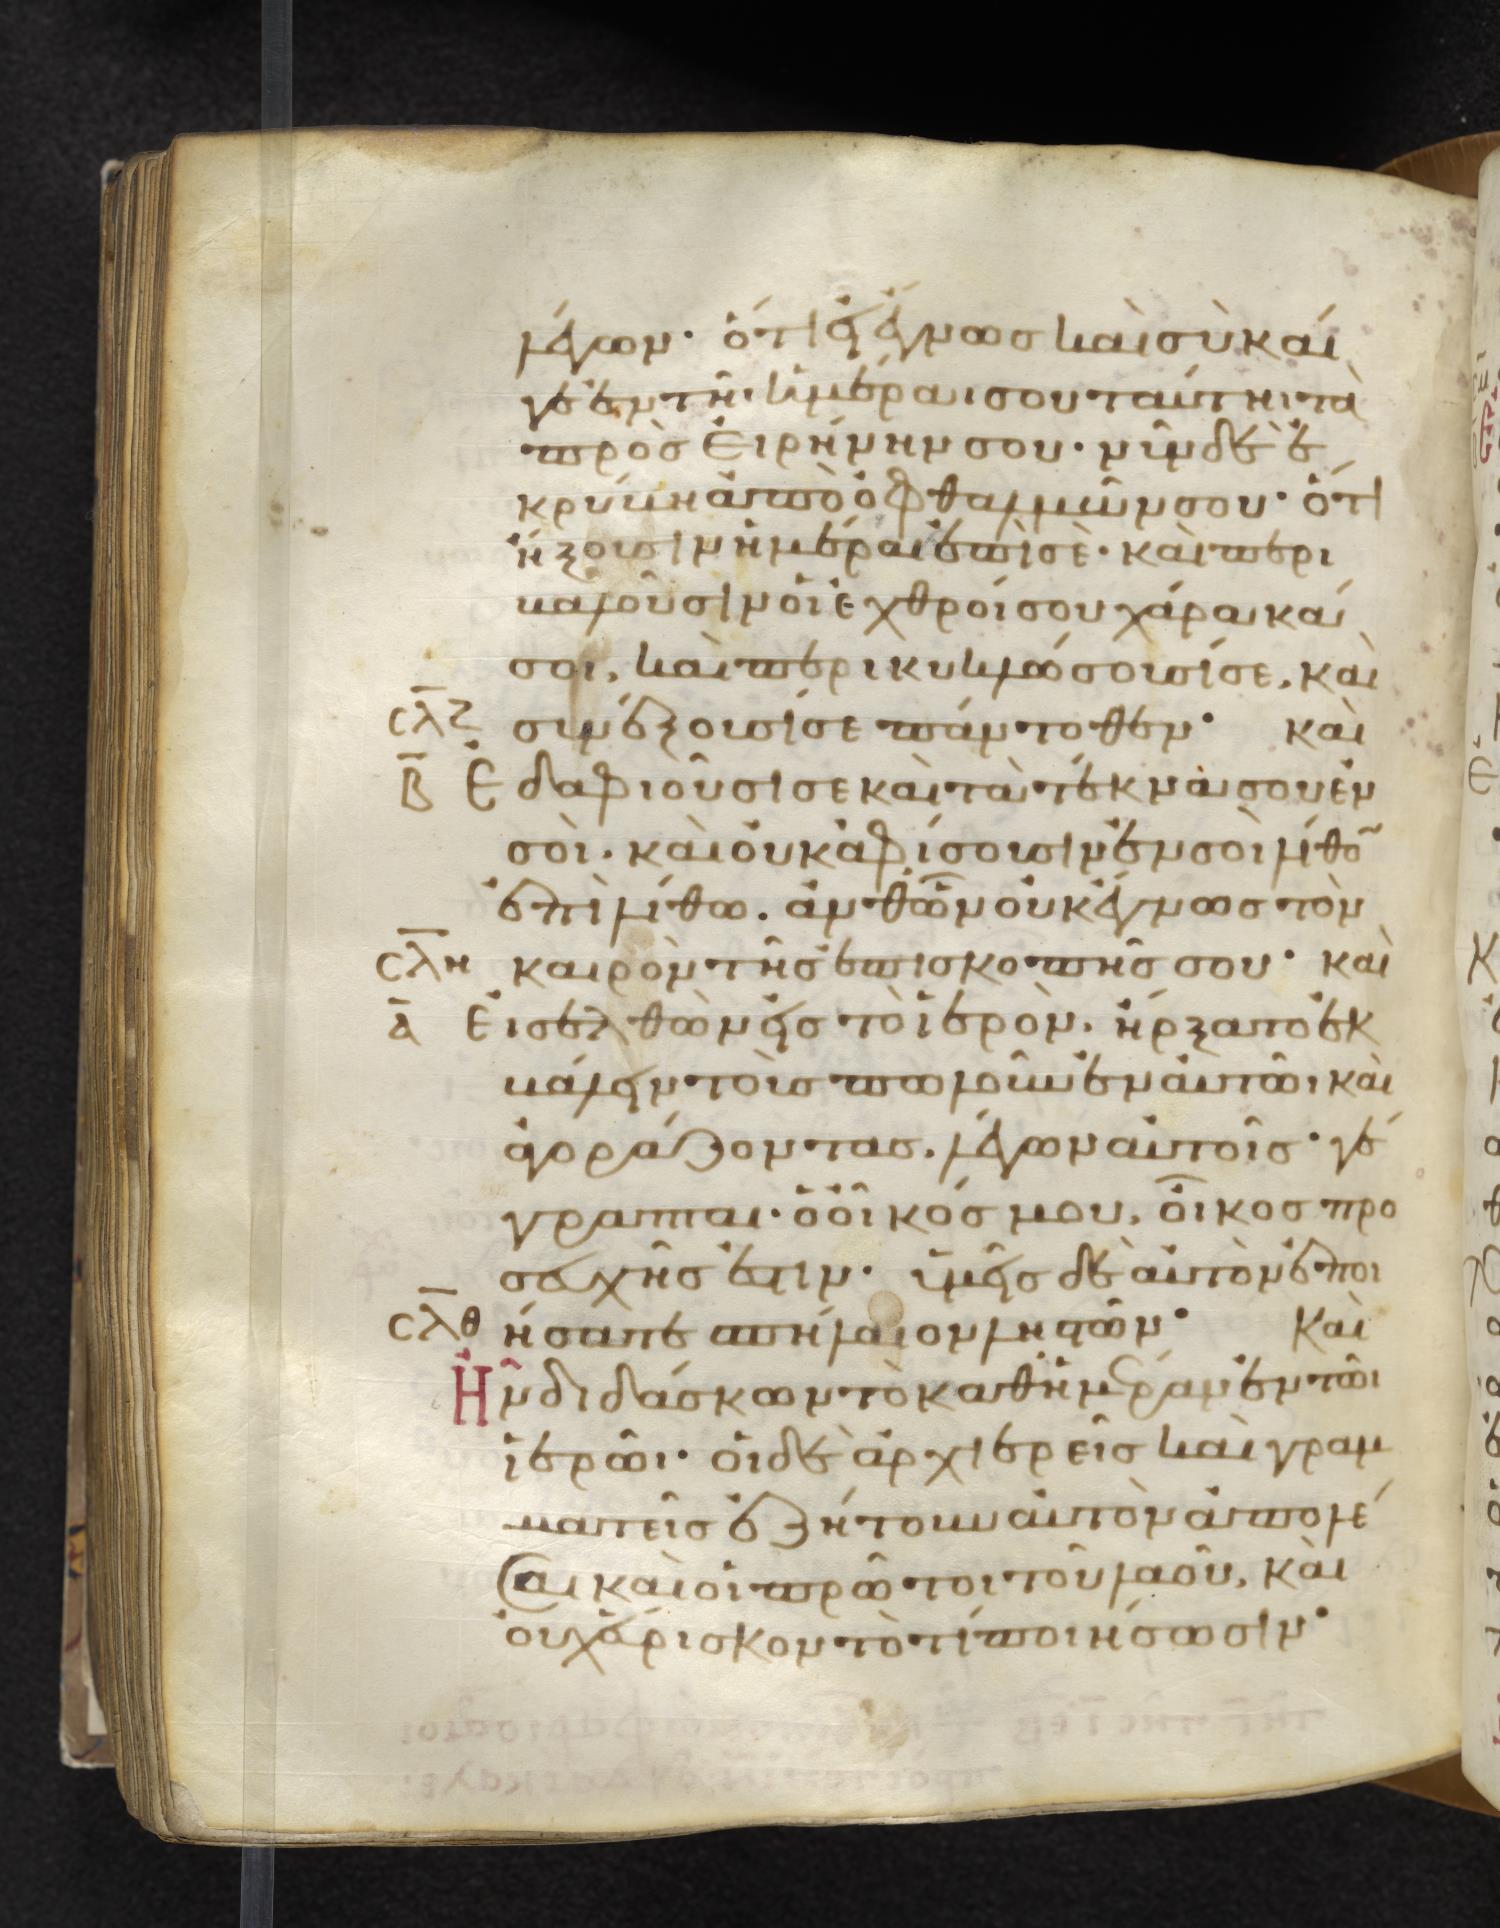 λέγων· ὅτι εἰ ἔγνως καὶ σὺ καί
γε ἐν τῆι ἡμέραι σου ταύτηι τὰ
πρὸς εἰρήνην σου· νῦν δὲ ἐ
κρύβη ἀπὸ ὀφθαλμῶν σου· ὅτι
ἥξουσιν ἡμέραι ἐπὶ σὲ· καὶ περι
βαλοῦσιν οἱ ἐχθροί σου χάρακά
σοι, καὶ περικυκλώσουσί σε, καὶ
σλζ συνέξουσί σε πάντοθεν· καὶ
β Ἐδαφιοῦσι σε καὶ τὰ τέκνα σου ἐν
σοὶ· καὶ οὐκ ἀφίσουσιν ἐν σοὶ λίθο̃
ἐπὶ λίθω. ἀνθῶν οὐκ ἔγνως τὸν
σλη καιρὸν τῆς ἐπισκοπῆς σου· καὶ
α Εἰσελθὼν εἰς τὸ ἱερὸν. ἤρξατο ἐκ
βάλειν τοὺς πωλοῦν ἐν αὐτῶι καὶ
ἀγοράζοντας. λέγων αὐτοῖς· γέ
γραπται· ὁ οἶκός μου, οἶκος προ
σευχῆς ἐστιν· ὑμεῖς δὲ αὐτὸν ἐποι
σλθ ήσατε σπήλαιον ληστῶν· Καὶ
Ἦν διδάσκων τὸ καθἡμέραν ἐν τῶι
ἱερῶι· οἱ δὲ ἀρχιερεῖς καὶ γραμ
ματεῖς ἐζήτουν αὐτὸν ἀπολέ
σαι καὶ οἱ πρῶτοι τοῦ λαοῦ, καὶ
οὐχ εὕρισκον τὸ τί ποιήσωσιν·